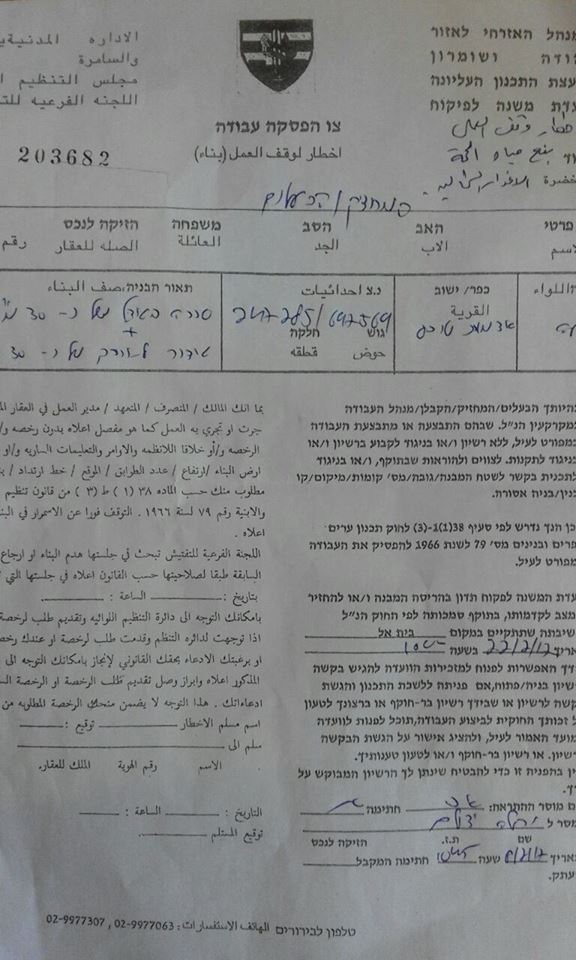 מנהל האזרחי לאזור
הודה ושומרון
עצת התכנון העליונה
עדת משנה לפיקוח
الاداره المدنية
والسامرة
مجلس التنظيم
اللجنه الفرعيه
צו הפסקה עבודה
اخطار لوقف العمل (بناء)
203682
פרטי
האב
הסב
משפחה
הזיקה לנכס
الاسم
الاب
الجد
العائلة
الصله للعقار
رقم
כפר/ ישוב
القرية
נ.צ احداثيات
247285/697569
גוש
חלקה
حوض
قطعه
תאור הבניה, صف البناء
היותך הבעלים/המחזיק/הקבלן/מנהל העבודה
במקרקעין הנ"ל. שבהם התבצעה או מתבצעת העבודה
כמפורט לעיל, ללא רשיון ו/או בניגוד לקבוע ברשיון ו/או
בניגוד לתקנות. לצווים ולהוראות שבתוקף, ו/או בניגוד
לתכנית בקשר לשטח המבנה/גובה/מס' קומות/מיקום/קו
בנין/בניה אסורה.
כן הנך נדרש לפי סעיף 38(1)-(3) לחוק תכנון ערים
כפרים ובנינים מס' 79 לשנת 1966 להפסיק את העבודה
מפורט לעיל.
עדת המשנה לפקוח תדון בהריסת המבנה ו/או להחזיר
מצב לקדמותו, בתוקף סמכותה לפי החוק הנ"ל
ישיבתה שתתקיים במקום בית אל
אריך 22/2/17 בשעה
דך האפשרות לפנות למזכירות הוועדה להגיש בקשה
רשיון בניה/פתוח, אם פניתה ללשכת התכנון והגשת
קשה לרשיון או שבידך רשיון בר-חוקף או ברצונך לטעון
ל זכותך החוקית לביצוע העבודה, תוכל לפנות לוועדה
מועד האמור לעיל, ולהציג אישור על הגשת הבקשה
רשיון. או רשיון בר-חוקף ו/או לטעון טענותיך.
ין בהפניה זו כדי להבטיח שינתן לך הרשיון המבוקש על
דך.
ם מוסר ההתראה: חתימה
מסר ל
שם
ת.ז.
הזיקה לנכס
אריך שעה חתימה המקבל
עתק.
بما انك المالك / المتصرف / المتعهد / مدير العمل في العقار
جرت او تجري به العمل كما هو مفصل اعلاه بدون رخصه
الرخصه و/أو خلافا للانظمه والاوامر والتعليمات الساريه و/او
ارض البناء /ارتفاع / عدد الطوابق / الموقع / خط ارتداد /
مطلوب منك حسب الماده ٣٨ (١) ط (٣) من قانون تنظيم
والابنية رقم ٧٩ لسنة ١٩٦٦ . التوقف فورا عن الاسمرار في
اعلاه .
اللجنه الفرعية للتفتيش تبحث في جلستها هدم البناء او ارجاع
السابقة طبقا لصلاحيتها حسب القانون اعلاه في جلستها التي
بتاريخ: الساعة :
بامكانك التوجه الى دائرة التنظيم اللوائيه وتقديم طلب لرخصة
اذا توجهت لدائره التنظم وقدمت طلب لرخصة او عندك
او برغبتك الادعاء بحقك القانوني لإنجاز بامكانك التوجه الى
المذكور اعلاه وابراز وصل تقديم طلب الرخصة او الرخصة
ادعائاتك . هذا التوجه لا يضمن منحك الرخصة المطلوبه من
اسم مسلم الاخطار توقيع :
سلم الى
الاسم
رقم الهوية
الملك للعقار.
التاريخ :
الساعة :
توقيع المستلم
טלפון לבירורים الهاتف الاستفسارات : 02-9977063 , 02-9977307